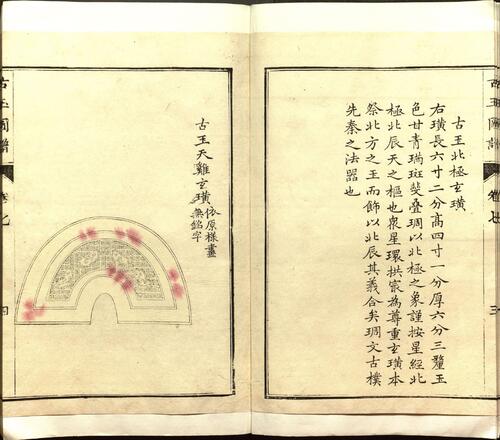 古玉北極玄璜
右璜長六寸二分高四寸一分厚六分三釐玉
色甘青瑞斑㸑疊琱以北極之象謹按星經北
極北辰天之樞也衆星環拱㝡為尊重玄璜本
祭北方之玉而飾以北辰其義合矣琱文古樸
先秦之法器也
古玉圖譜
卷七
三
古玉天雞玄璜
依原樣畫
無銘字
古玉圖譜
卷七
四